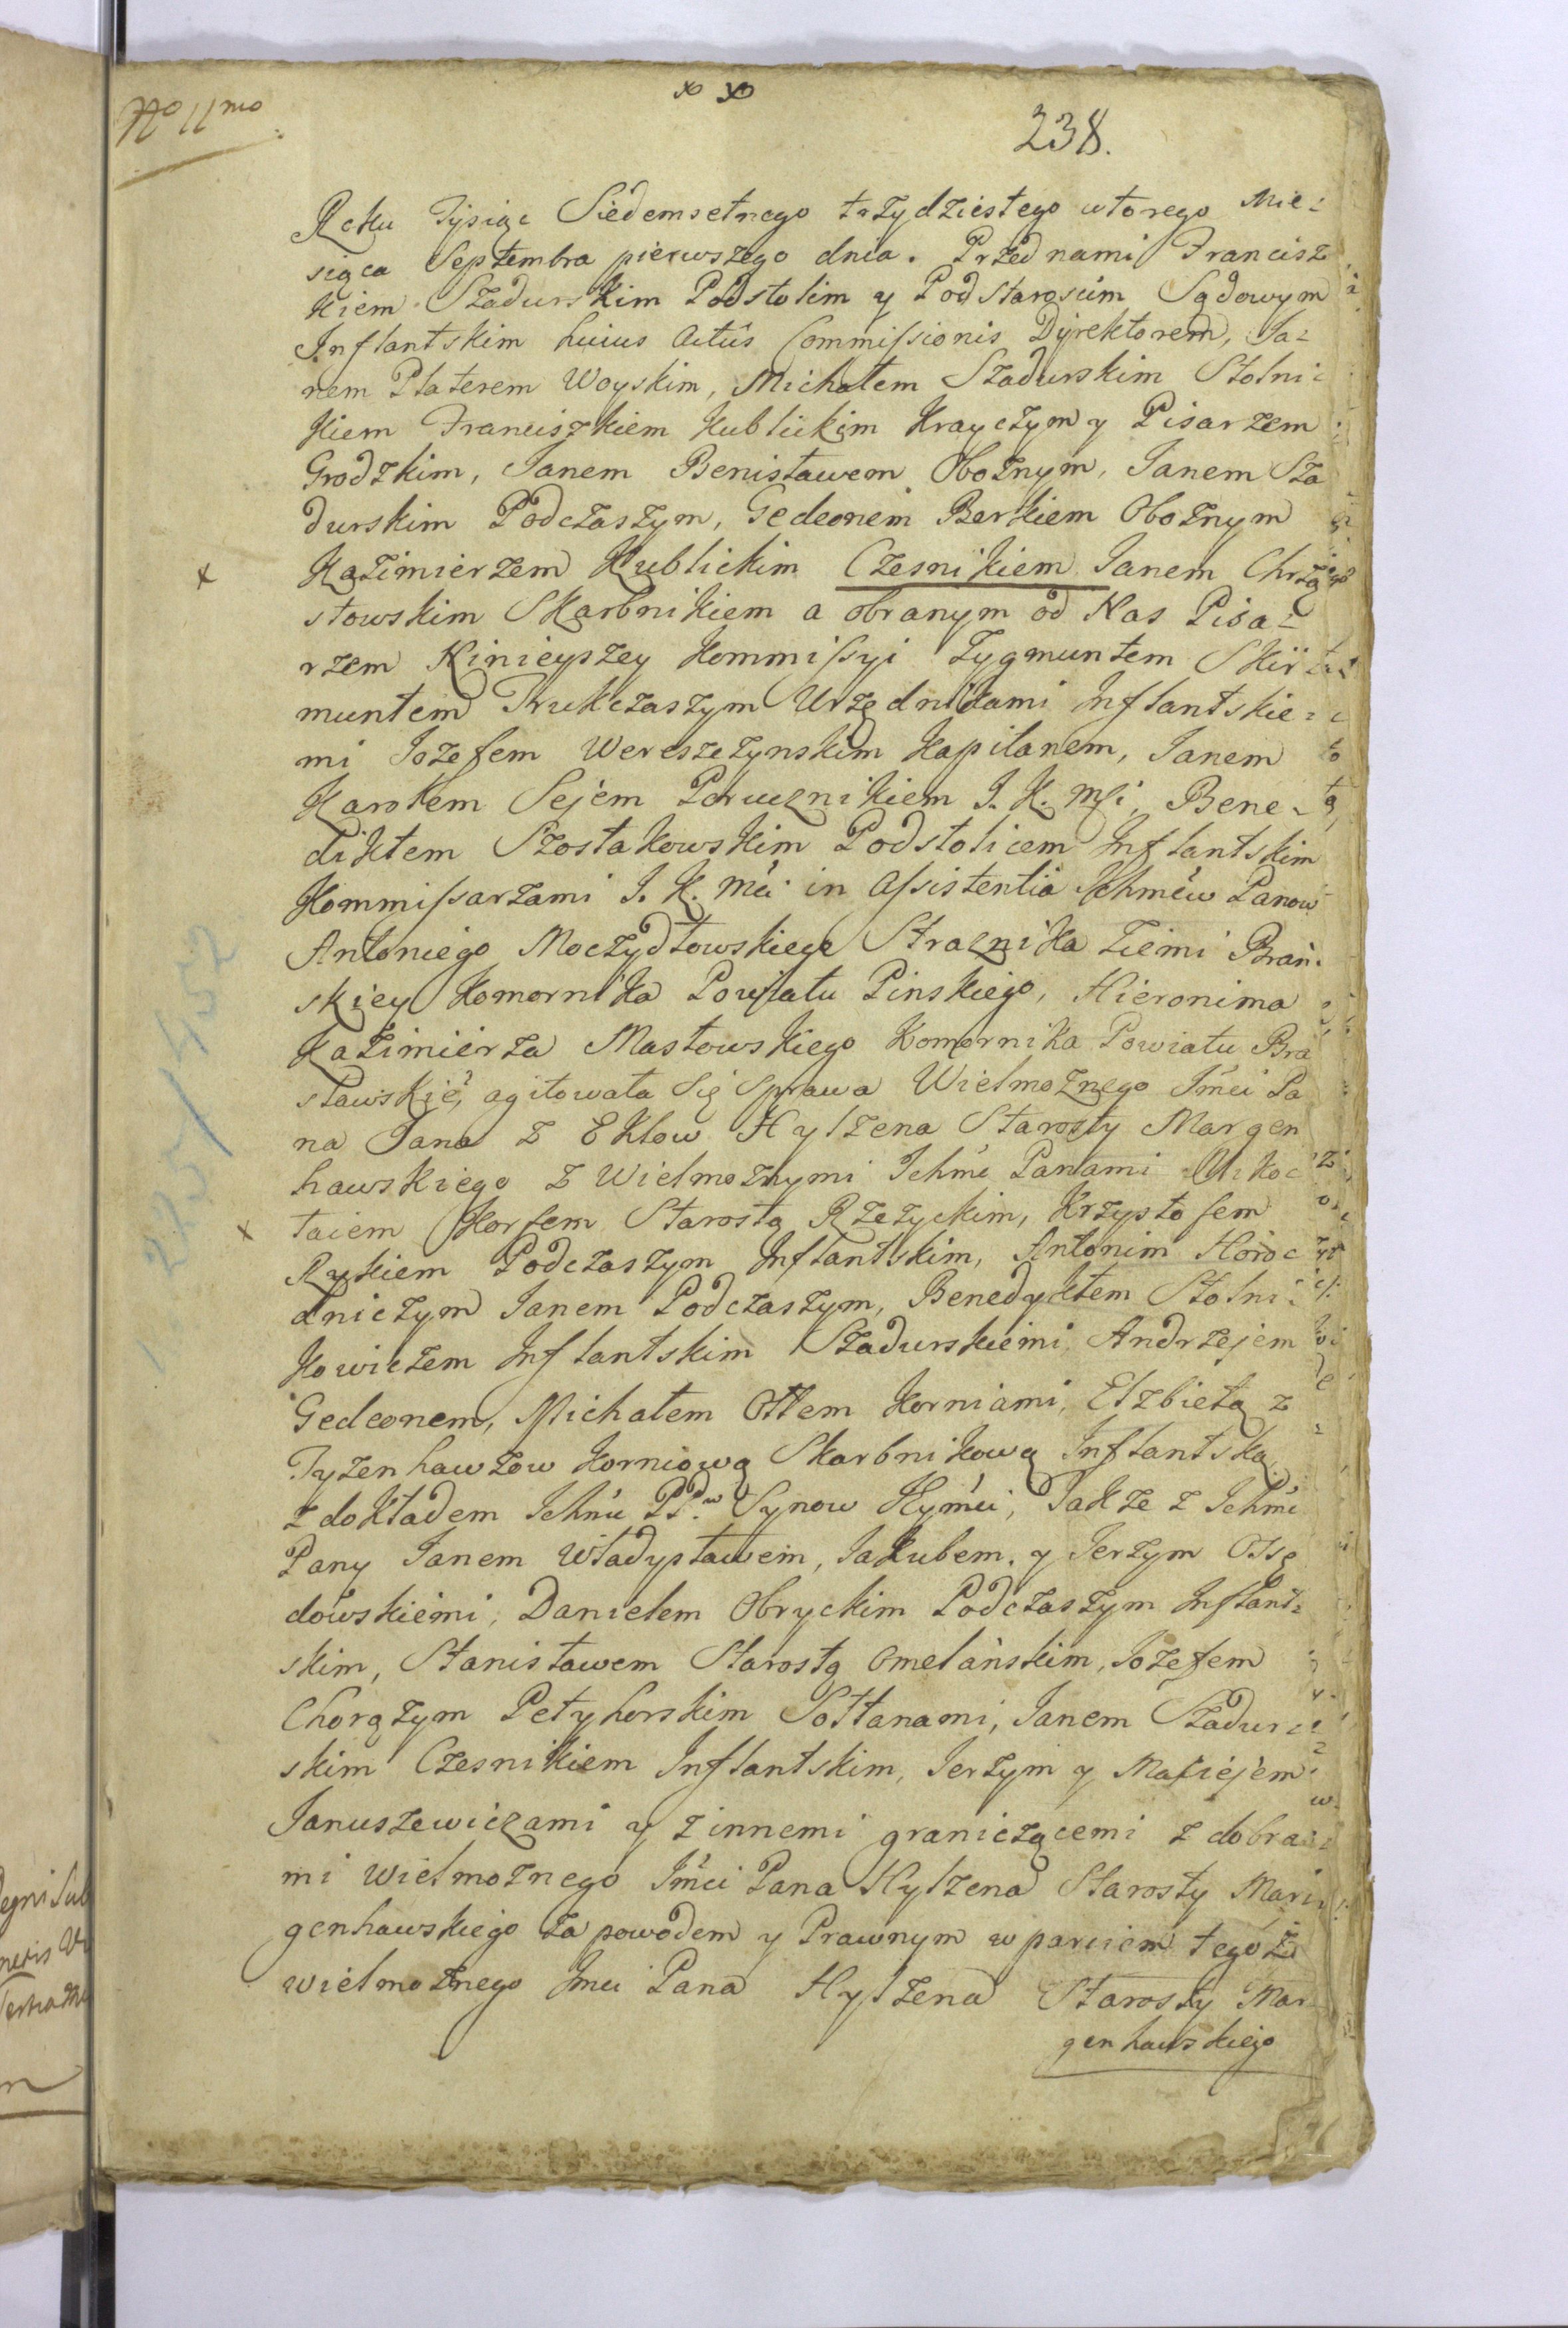 No 11mo
238.
Roku Tysiąc Siedemsetnego trzydziestego wtorego Mie=
siąca Septembra pierwszego dnia. Przed nami Francisz
kiem Szadurskim Podstolim y Podstarościm Sądowym
Inflantskim huius Actûs Commissionis Dyrektorem, Ja=
nem Platerem Woyskim, Michałem Szadurskim Stolni=
kiem Franciszkiem Kublickim Krayczym y Pisarzem
Grodzkim, Janem Benisławem Oboznym, Janem Sza
durskim Podczaszym, Gedeonem Berkiem Oboznym
Kazimierzem Kublickim Czesnikiem Janem Chrzą
stowskim Skarbnikiem a obranym od Nas Pisa=
rzem Ninieyszey Kommissyi Zygmuntem Skir
muntem Trukczaszym Urzędnikami Inflantskie=
mi Jozefem Wereszczynskim Kapitanem, Janem
Karolem Sejem Porucznikiem J. K. Mśi, Bene=
diktem Szostakowskim Podstolicem Inflantskim
Kommissarzami J. K. Mći in Assistentia Ichmćiw Panow
Antoniego Moczydłowskiego Straznika Ziemi Brań=
skiey Komornika Powiatu Pinskiego, Hieronima
Kazimierza Masłowskiego Komornika Powiatu Bra
sławskie, agitowała się Sprawa Wielmoznego Jmći Pa
na Jana z Ekłow Hylzena Starosty Margen
hawskiego z Wielmoznymi Ichmć Panami Mikoł
taiem Korfem Starostą Rzeżyckim, Krzysztofem
Rykiem Podczaszym Inflantskim, Antonim Horod
dniczym Janem Podczaszym, Benedyktem Stolni=
kowiczem Inflantskim Szadurskiemi, Andrzejem
Gedeonem, Michałem Ottem Korniami, Elzbietą z
Tyzenhawzow Korniową Skarbnikową Inflantską
z dokładem Ichmć PP.w Synow Ieymći, Takze z Ichmć
Pany Janem Władysławem, Jakubem, y Jerzym Osse
dowskiemi, Danielem Obryckim Podczaszym Inflant=
skim, Stanisławem Starostą Omelańskim, Jozefem
Chorązym Petyhorskim Sołtanami, Janem Szadur=
skim Czesnikiem Inflantskim, Jerzym y Maciejem
Januszewiczami y z innemi graniczącemi z dobra=
mi Wielmoznego Jmći Pana Hylzena Starosty Mar=
genhawskiego za powodem y Prawnym wparciem tegoż
wielmoznego Jmci Pana Hylzena Starosty Mar
genhawskiego